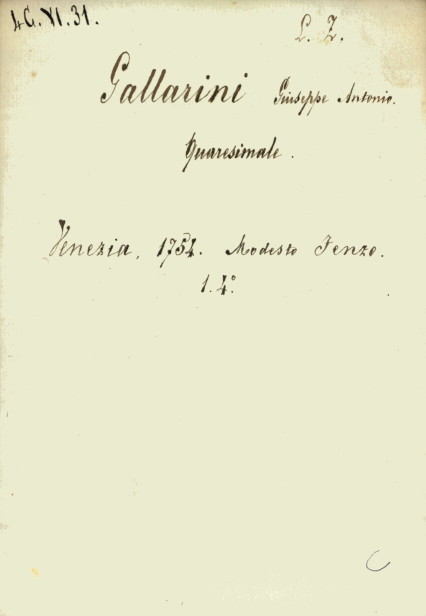 4G.VI.31.
L. Z.
Gallarini Giuseppe Antonio.
Quaresimale.
Venezia, 1754. Modesto Fenzo.
1.4°
C